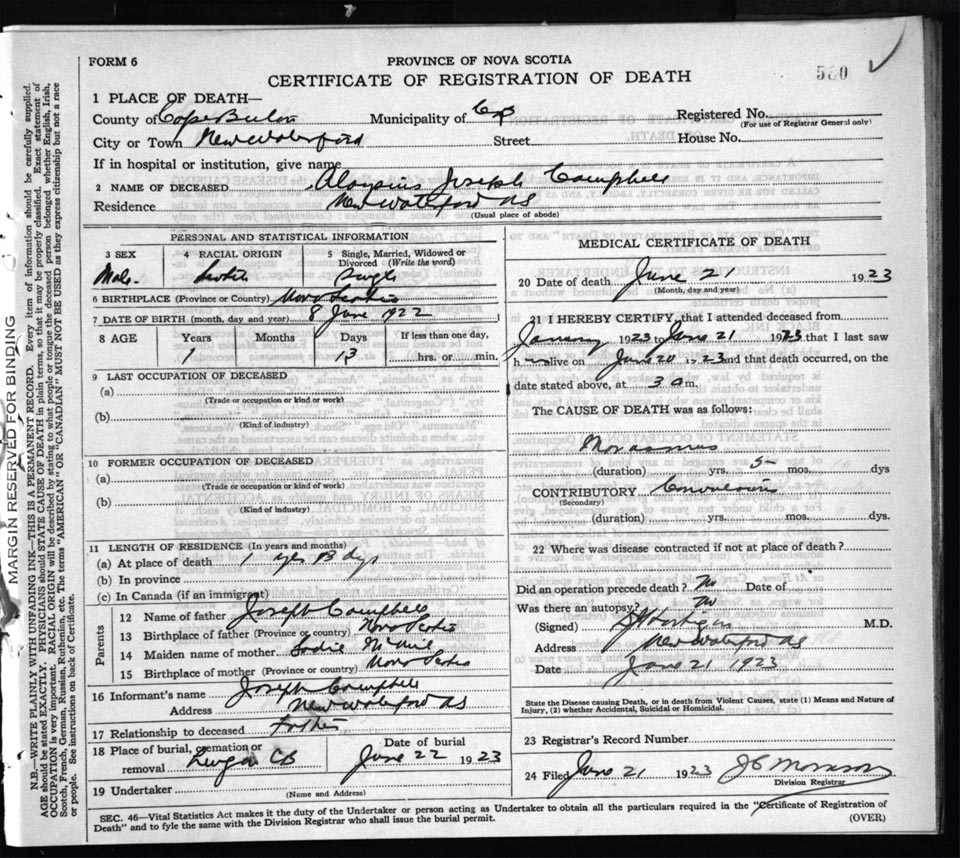 FORM 6
PROVINCE OF NOVA SCOTIA
CERTIFICATE OF REGISTRATION OF DEATH
580
1 PLACE OF DEATH—
County of Cape Breton Municipality of CB Registered No.
(For use of Registrar General only)
City or Town New Waterford Street House No.
If in hospital or institution, give name
2 NAME OF DECEASED Aloysius Joseph Campbell
Residence New Waterford NS
(Usual place of abode)
PERSONAL AND STATISTICAL INFORMATION
3 SEX 4 RACIAL ORIGIN 5 Single, Married, Widowed or
Divorced (Write the word)
Male Single
6 BIRTHPLACE (Province or Country) Nova Scotia
7 DATE OF BIRTH (month, day and year) 8 June 1922
8 AGE Years Months Days If less than one day,
1 13 hrs. or min.
9 LAST OCCUPATION OF DECEASED
(a)
(Trade or occupation or kind of work)
(b)
(Kind of industry)
10 FORMER OCCUPATION OF DECEASED
(a)
(Trade or occupation or kind of work)
(b)
(Kind of industry)
11 LENGTH OF RESIDENCE (In years and months)
(a) At place of death 1 13 dys
(b) In province
(c) In Canada (if an immigrant)
Parents
12 Name of father Joseph Campbell
13 Birthplace of father (Province or country) Nova Scotia
14 Maiden name of mother Sadie
15 Birthplace of mother (Province or country) Nova Scotia
16 Informant's name Joseph Campbell
Address New Waterford NS
17 Relationship to deceased Father
18 Place of burial, cremation or Date of burial
removal Lingan CB June 22 1923
19 Undertaker
(Name and Address)
MEDICAL CERTIFICATE OF DEATH
20 Date of death June 21 1923
(Month, day and year)
21 I HEREBY CERTIFY, that I attended deceased from
January 1923 June 21 1923 that I last saw
h alive on June 20 1923 and that death occurred, on the
date stated above, at 3 a m.
The CAUSE OF DEATH was as follows:
Marasmus
(duration) yrs. 5 mos. dys
CONTRIBUTORY Convulsions
(Secondary)
(duration) yrs. mos. dys.
22 Where was disease contracted if not at place of death?
Did an operation precede death? No Date of
Was there an autopsy? No
(Signed) M.D.
Address New Waterford NS
Date June 21 1923
State the Disease causing Death, or in death from Violent Causes, state (1) Means and Nature of
Injury, (2) whether Accidental, Suicidal or Homicidal.
23 Registrar's Record Number
24 Filed June 21 1923 J C Morrison
Division Registrar
SEC. 46—Vital Statistics Act makes it the duty of the Undertaker or person acting as Undertaker to obtain all the particulars required in the "Certificate of Registration of
Death" and to fyle the same with the Division Registrar who shall issue the burial permit.
(OVER)
MARGIN RESERVED FOR BINDING
N.B.—WRITE PLAINLY WITH UNFADING INK—THIS IS A PERMANENT RECORD. Every item of information should be carefully supplied.
AGE should be stated EXACTLY. PHYSICIANS should STATE CAUSE OF DEATH in plain terms, so that it may be properly classified. Exact statement of
OCCUPATION is very important. RACIAL ORIGIN will be described by stating to what people or tongue the deceased person belonged whether English, Irish,
Scotch, French, German, Russian, Ruthenian, etc. The terms "AMERICAN" or "CANADIAN" MUST NOT BE USED as they express citizenship but not a race
or people. See instructions on back of Certificate.